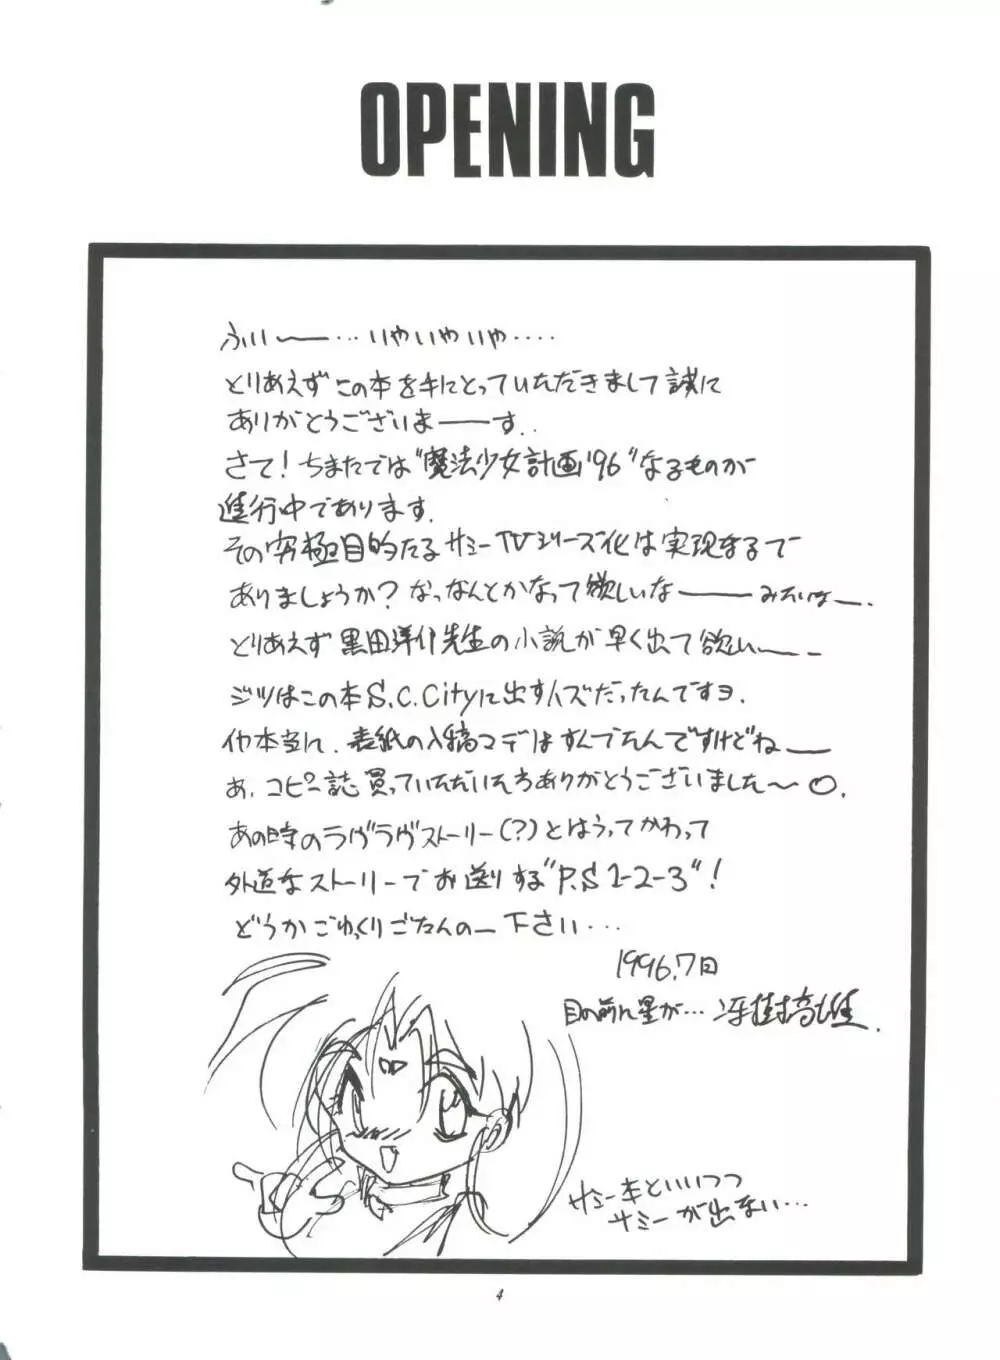 OPENING
ふぃ〜〜…いやいやいや‥‥
とりあえずこの本を手にとっていただきまして誠に
ありがとうございま――す..
さて!ちまたでは"魔法少女計画'96"なるものが
進行中であります.
その究極目的たるサミーTVシリーズ化は実現するで
ありましょうか?なっなんとかなって欲しいな――みたいな―.
とりあえず黒田洋介先生の小説が早く出て欲しい〜―
ジツはこの本S.C.Cityに出すハズだったんですヨ.
イヤ本当に、表紙の入稿マデはすんでたんですけどね―
あ、コピー誌買っていただいた方ありがとうございました〜○.
あの時のラヴラヴストーリー(?)とはうってかわって
外道なストーリーでお送りする"P.S 1-2-3"!
どうかごゆっくりごたんの―下さい…
1996.7月
目の前に星が…冴樹高雄.
サミー本といいつつ
サミーが出ない…
4